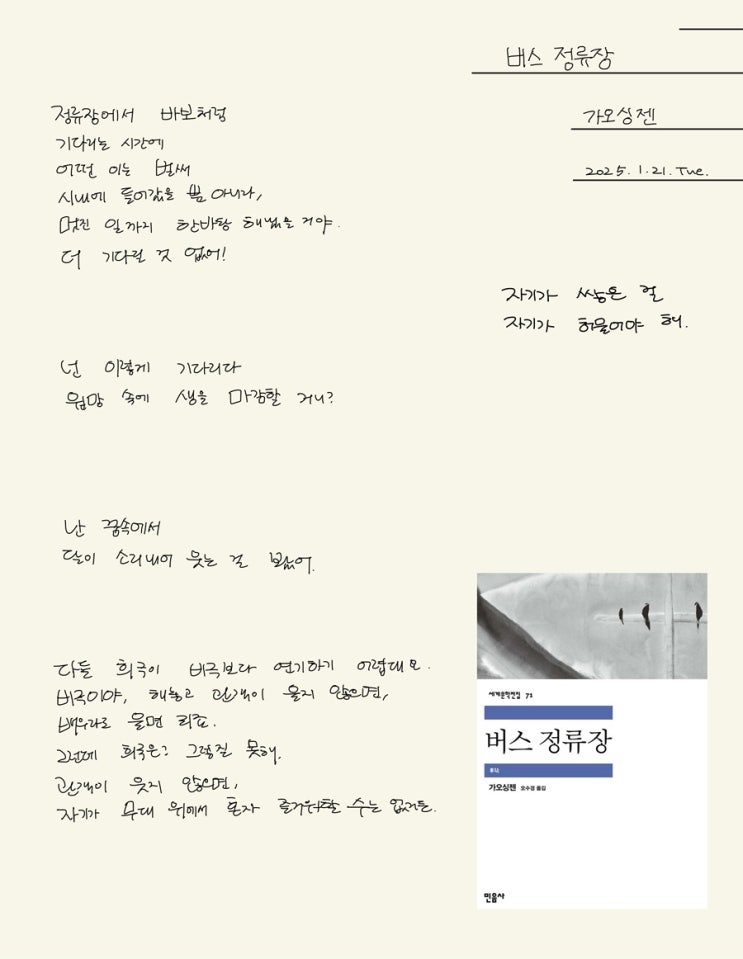 버스 정류장
가오싱젠
2025. 1. 21. Tue.
정류장에서 바보처럼
기다리는 시간에
어떤 이는 벌써
시내에 들어갔을 뿐 아니라,
멋진 일까지 한바탕 해냈을 거야.
더 기다릴 것 없어!
자기가 쌓은 걸
자기가 허물어야 해.
넌 이렇게 기다리다
원망 속에 생을 마감할 거니?
난 꿈속에서
달이 소리내어 웃는 걸 봤어.
다들 희극이 비극보다 연기하기 어렵대요.
비극이야, 해놓고 관객이 울지 않으면,
배우라도 울면 되죠.
그런데 희극은? 그렇질 못해.
관객이 웃지 않으면,
자기가 무대 위에서 혼자 즐거워할 수는 없거든.
세계문학전집 71
버스 정류장
가오싱젠 오수경 옮김
민음사